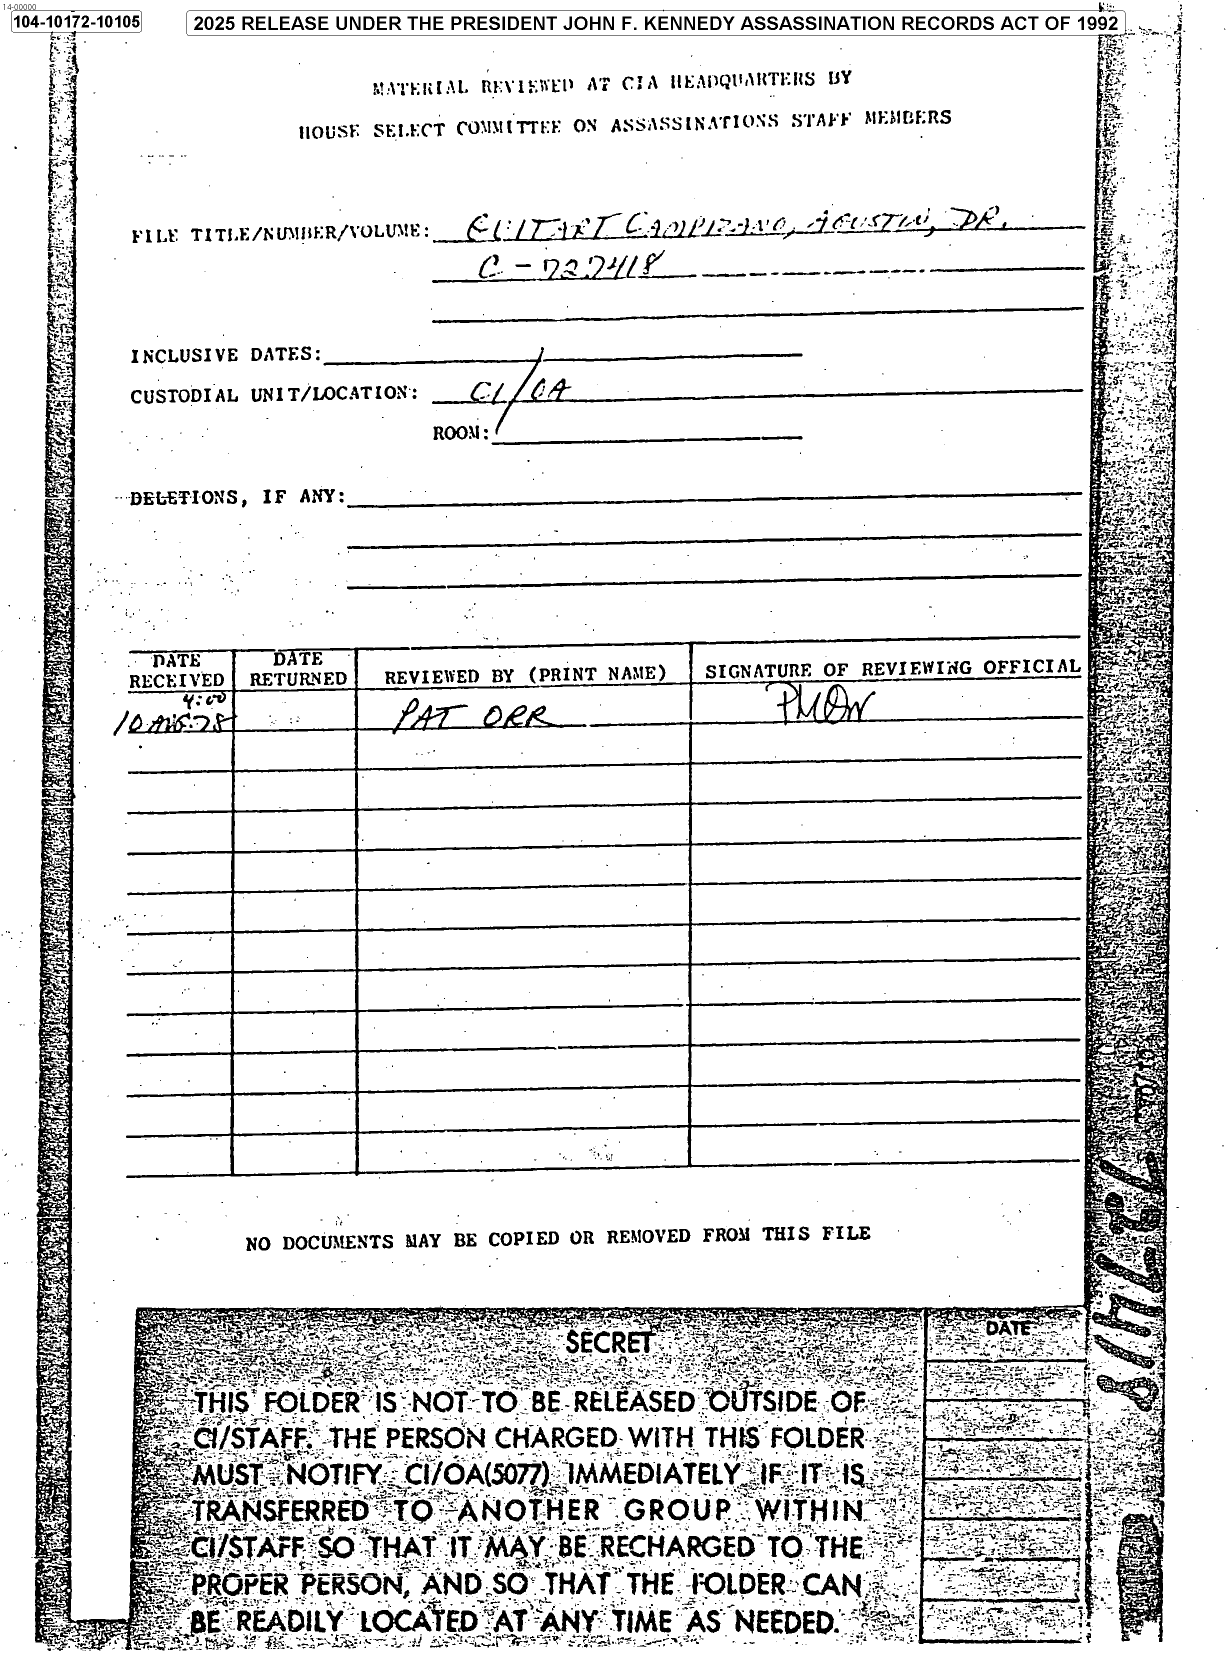 14-00000
104-10172-10105
2025 RELEASE UNDER THE PRESIDENT JOHN F. KENNEDY ASSASSINATION RECORDS ACT OF 1992
MATERIAL REVIEWED AT CIA HEADQUARTERS BY
HOUSE SELECT COMMITTEE ON ASSASSINATIONS STAFF MEMBERS
FILE TITLE/NUMBER/VOLUME: GUITART CAMPIZANO, AGUSTIN, DR.
C-727418
INCLUSIVE DATES:
CUSTODIAL UNIT/LOCATION: CI/OA
ROOM:
DELETIONS, IF ANY:
DATE RECEIVED DATE RETURNED REVIEWED BY (PRINT NAME) SIGNATURE OF REVIEWING OFFICIAL
4:00
10 AUG 78 PAT ORR PMOrr
NO DOCUMENTS MAY BE COPIED OR REMOVED FROM THIS FILE
SECRET
DATE
THIS FOLDER IS NOT TO BE RELEASED OUTSIDE OF
CI/STAFF. THE PERSON CHARGED WITH THIS FOLDER
MUST NOTIFY CI/OA(5077) IMMEDIATELY IF IT IS
TRANSFERRED TO ANOTHER GROUP WITHIN
CI/STAFF SO THAT IT MAY BE RECHARGED TO THE
PROPER PERSON, AND SO THAT THE FOLDER CAN
BE READILY LOCATED AT ANY TIME AS NEEDED.
727418